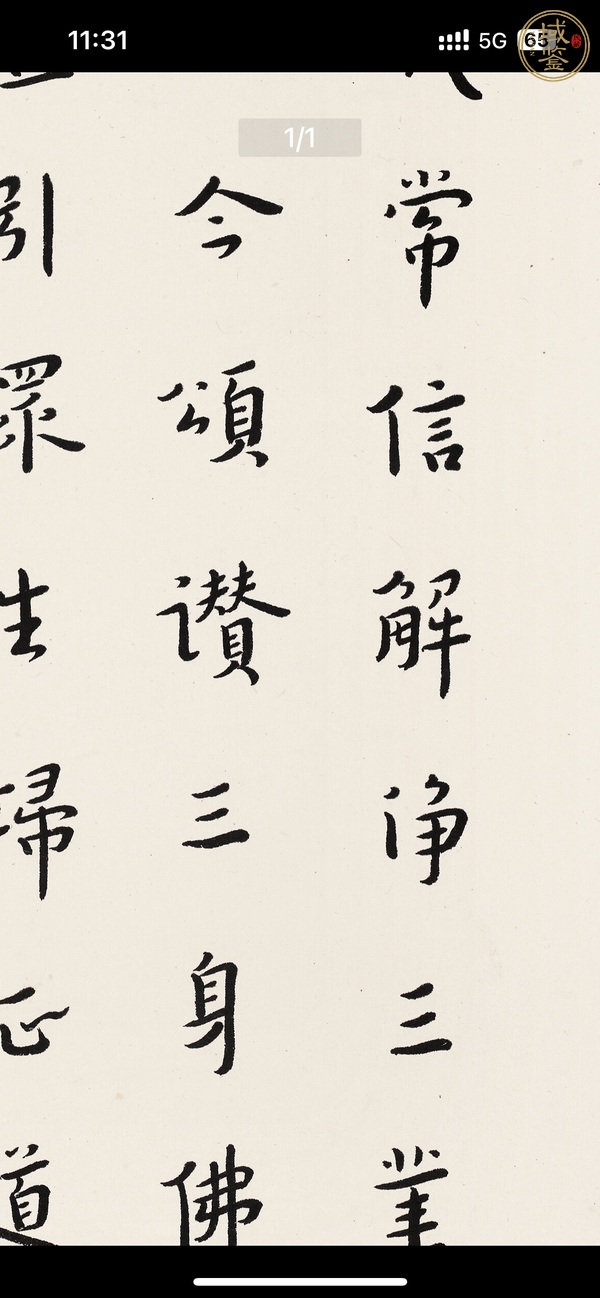 11:31
5G
65
1/1
常信解净三業
今頌讃三身佛
引眾生歸正道
咸鉴